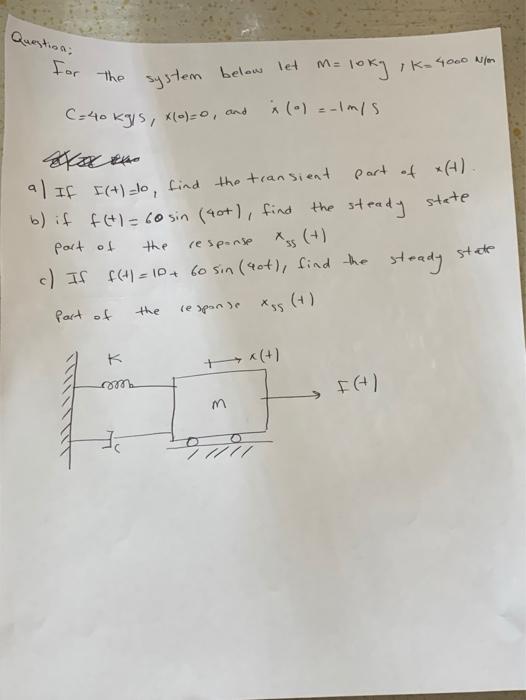 Question:
For the system below let M= 10kg, K=4000 N/m
C=40 kg/s, x(0)=0, and ẋ(0) =-1m/s
a) If F(t)=10, find the transient part of x(t).
b) if f(t)= 60 sin (40t), find the steady state
part of the response xss (t)
c) If f(t)=10+ 60 sin(40t), find the steady state
part of the response xss (t)
K
+ x(t)
m
F(t)
c